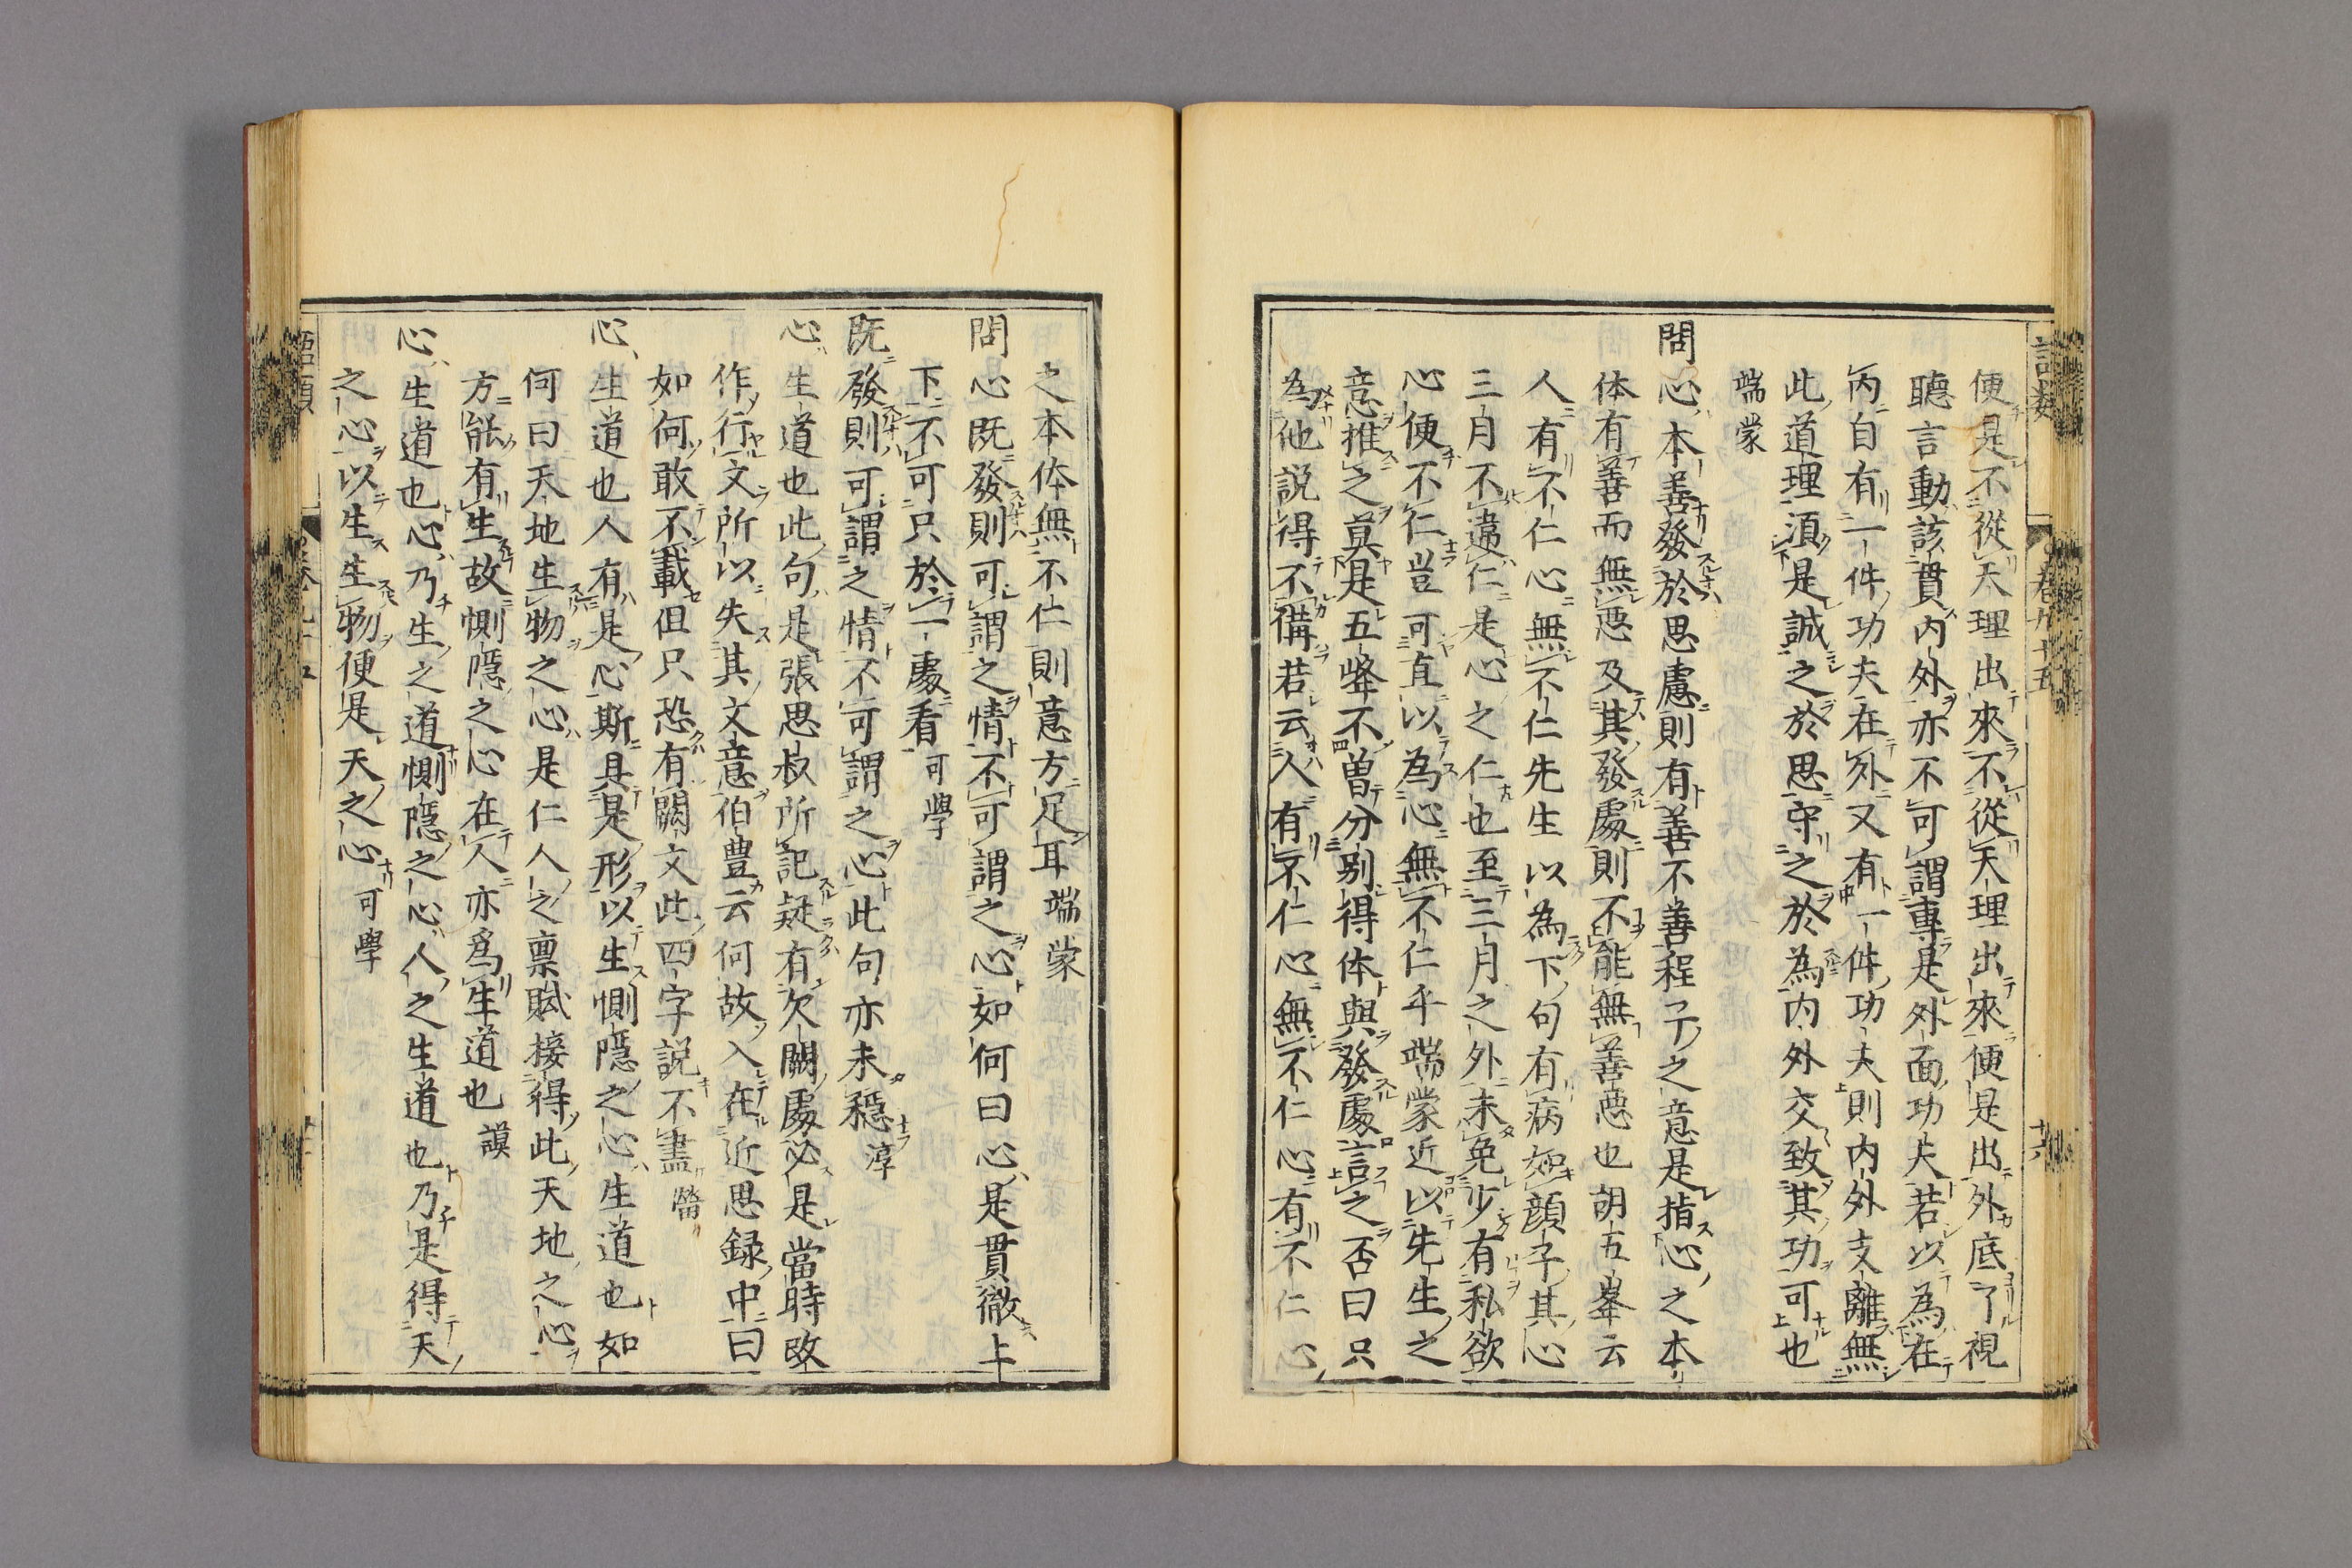 便是不從天理出來不從天理出來便是出外底了視
聽言動該貫內外亦不可謂專是外面功夫若以為在
內自有一件功夫在外又有一件功夫則內外支離無
此道理須是誠之於思守之於為內外交致其功可也
端蒙
問心本善發於思慮則有善不善程子之意是指心之本
体有善而無惡及其發處則不能無善惡也胡五峯云
人有不仁心無不仁先生以為下句有病如顔子其心
三月不違仁是心之仁也至三月之外未免少有私欲
心便不仁豈可直以為心無不仁乎端蒙近以先生之
意推之莫是五峯不曽分别得体與發處言之否曰只
為他説得不備若云人有不仁心無不仁心有不仁心
之本体無不仁則意方足耳端蒙
問心既發則可謂之情不可謂之心如何曰心是貫徹上
下不可只於一處看可學
既發則可謂之情不可謂之心此句亦未穩淳
心生道也此句是張思叔所記疑有欠闕處必是當時改
作行文所以失其文意伯豊云何故入在近思録中曰
如何敢不載但只恐有闕文此四字説不盡㽦
心生道也人有是心斯具是形以生惻隱之心生道也如
何曰天地生物之心是仁人之禀賦接得此天地之心
方能有生故惻隱之心在人亦爲生道也謨
心生道也心乃生之道惻隱之心人之生道也乃是得天
之心以生生物便是天之心可學
語類
卷九十五
十六